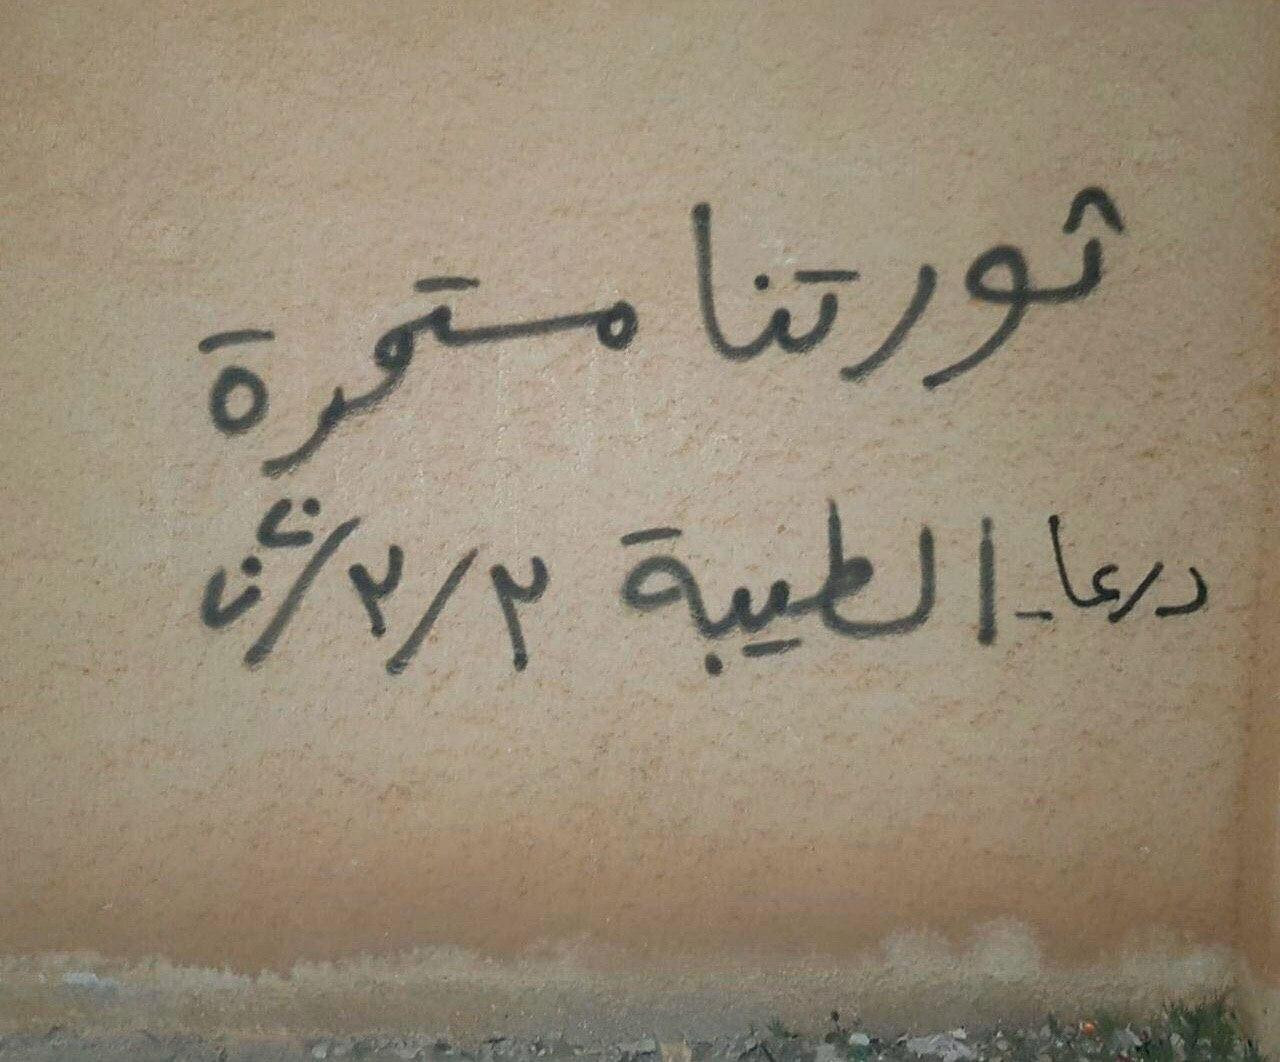 ثورتنا مستمرة
درعا - الطيبة ٣/٣/